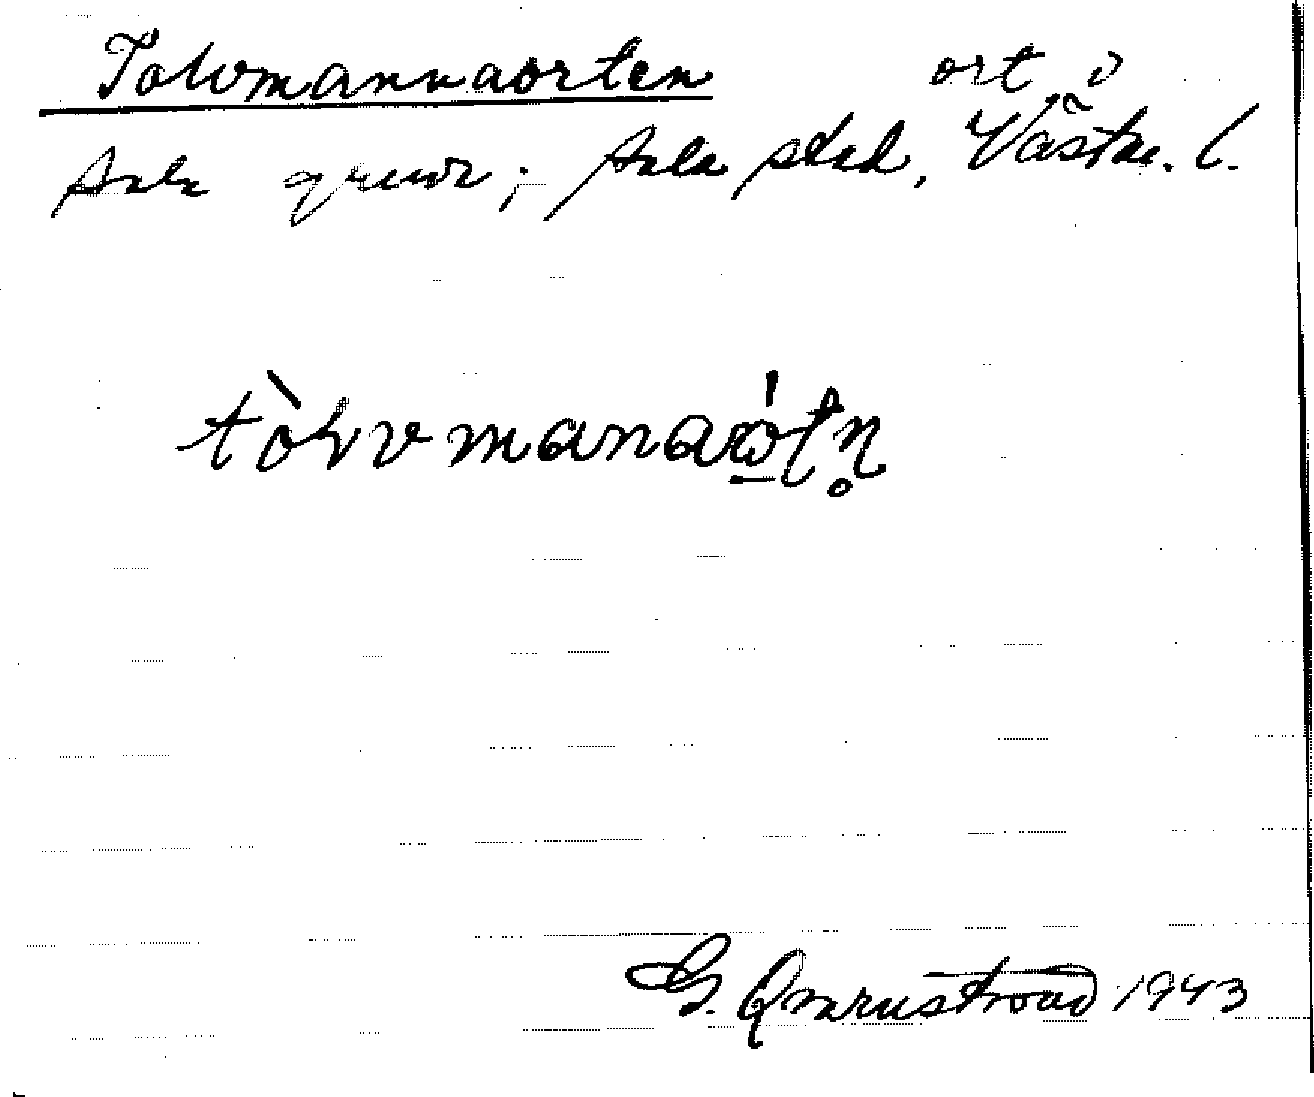 Tolvmannaorten ort i
Sala gruva; Sala stad, Västm. l.
tòlvmanaώ̠ʈn̥
G. Qvarnström 1943